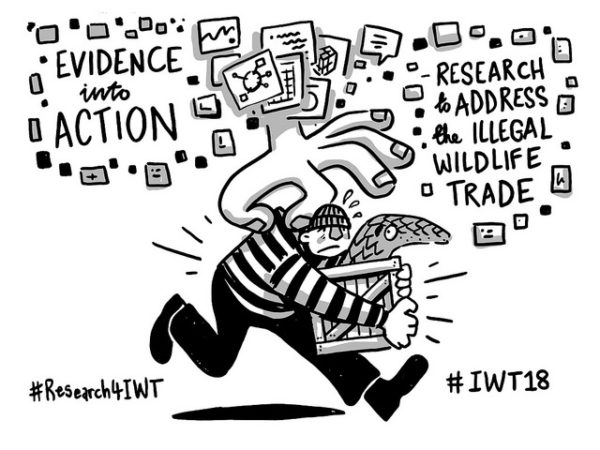 EVIDENCE
into
ACTION
- RESEARCH
to ADDRESS
the ILLEGAL
WILDLIFE
TRADE
#Research4IWT
#IWT18